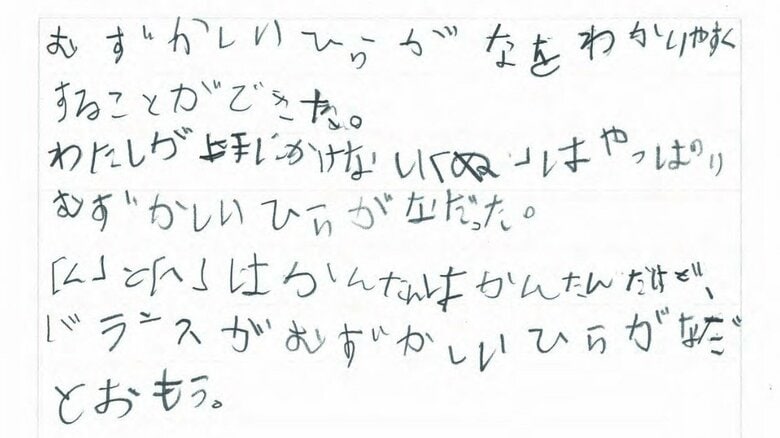 むずかしいひらがなをわかりやすく
することができた。
わたしが上手にかけない「ぬ」はやっぱり
むずかしいひらがなだった。
「く」と「へ」はかんたんはかんたんだけど、
バランスがむずかしいひらがなだ
とおもう。